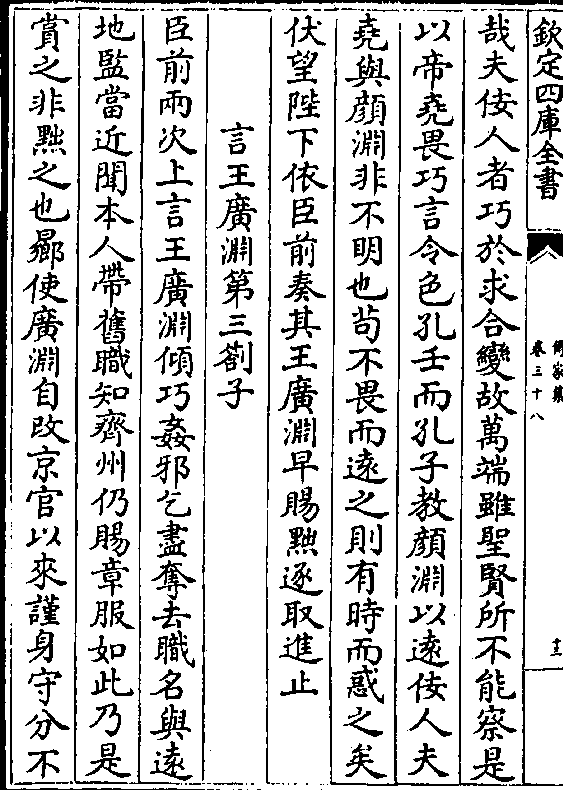 欽定四庫全書
卷三十八
哉夫佞人者巧於求合變故萬端雖聖賢所不能察是
以帝堯畏巧言令色孔壬而孔子教顔淵以逺佞人夫
堯與顔淵非不明也茍不畏而逺之則有時而惑之矣
伏望陛下依臣前奏其王廣淵早賜黜逐取進止
言王廣淵第三劄子
臣前兩次上言王廣淵傾巧姦邪乞盡奪去職名與逺
地監當近聞本人帶舊職知齊州仍賜章服如此乃是
賞之非黜之也曏使廣淵自改京官以來謹身守分不